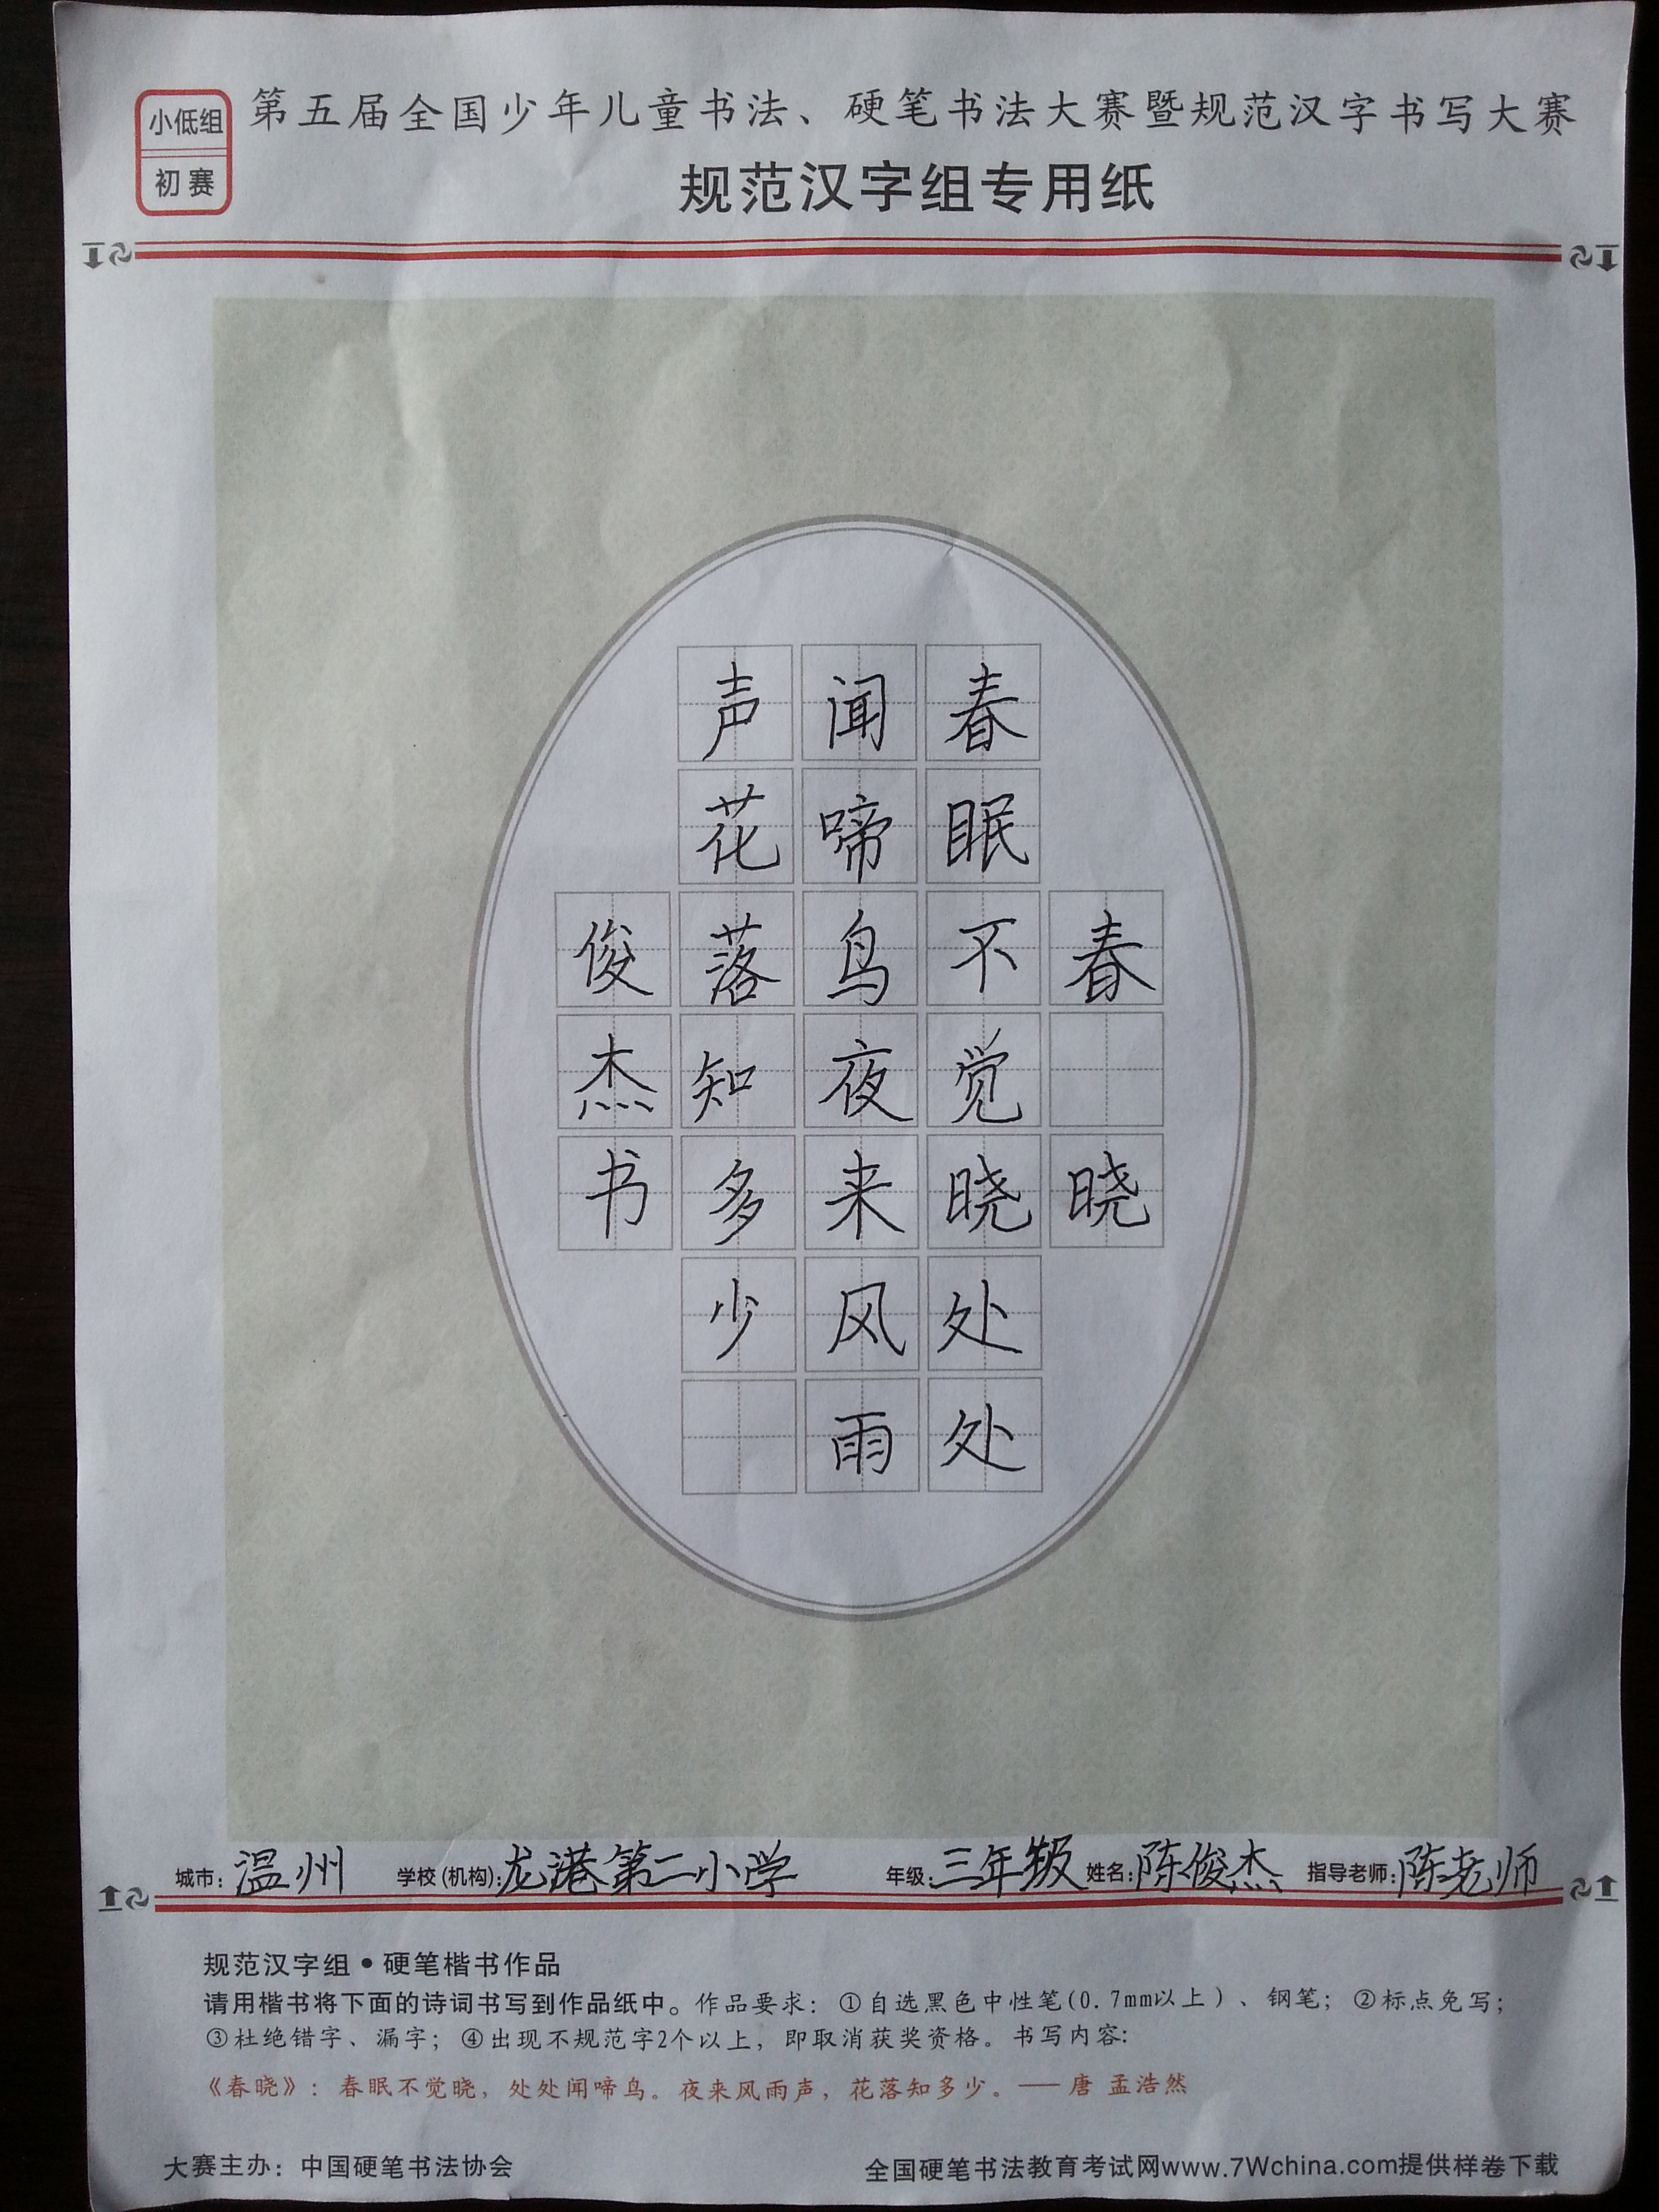 小低组
初赛
第五届全国少年儿童书法、硬笔书法大赛暨规范汉字书写大赛
规范汉字组专用纸
春晓
春眠不觉晓处处
闻啼鸟夜来风雨
声花落知多少
俊杰书
城市：温州 学校(机构)：龙港第二小学 年级：三年级 姓名：陈俊杰 指导老师：陈老师
规范汉字组•硬笔楷书作品
请用楷书将下面的诗词书写到作品纸中。作品要求：①自选黑色中性笔(0.7mm以上)、钢笔；②标点免写；
③杜绝错字、漏字；④出现不规范字2个以上，即取消获奖资格。书写内容：
《春晓》：春眠不觉晓，处处闻啼鸟。夜来风雨声，花落知多少。——唐 孟浩然
大赛主办：中国硬笔书法协会
全国硬笔书法教育考试网www.7Wchina.com提供样卷下载